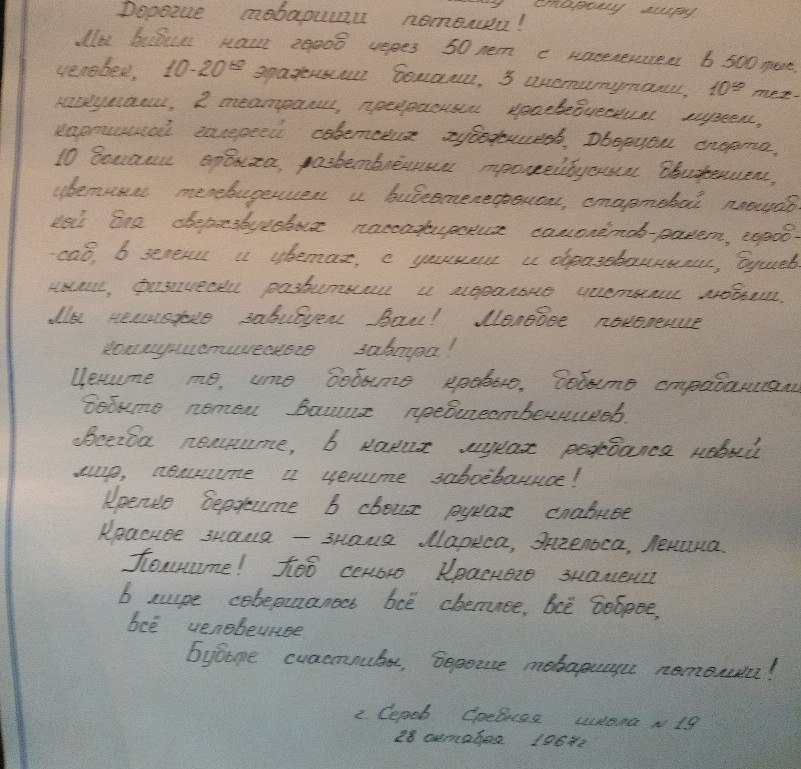 старому миру
Дорогие товарищи потомки!
Мы видим наш город через 50 лет с населением в 500 тыс.
человек, 10-20ти этажными домами, 3 институтами, 10ю тех-
никумами, 2 театрами, прекрасным краеведческим музеем,
картинной галереей советских художников, Дворцом спорта,
10 домами отдыха, разветвлённым троллейбусным движением,
цветным телевидением и видеотелефоном, стартовой площад-
кой для сверхзвуковых пассажирских самолётов-ракет, город-
-сад, в зелени и цветах, с умными и образованными, душев-
ными, физически развитыми и морально чистыми людьми.
Мы немножко завидуем Вам! Молодое поколение
коммунистического завтра!
Цените то, что добыто кровью, добыто страданиями
добыто потом Ваших предшественников.
Всегда помните, в каких муках рождался новый
мир, помните и цените завоёванное!
Крепко держите в своих руках славное
Красное знамя — знамя Маркса, Энгельса, Ленина.
Помните! Под сенью Красного знамени
в мире совершалось всё светлое, всё доброе,
всё человечное
Будьте счастливы, дорогие товарищи потомки!
г. Серов Средняя школа № 19
28 октября 1967г